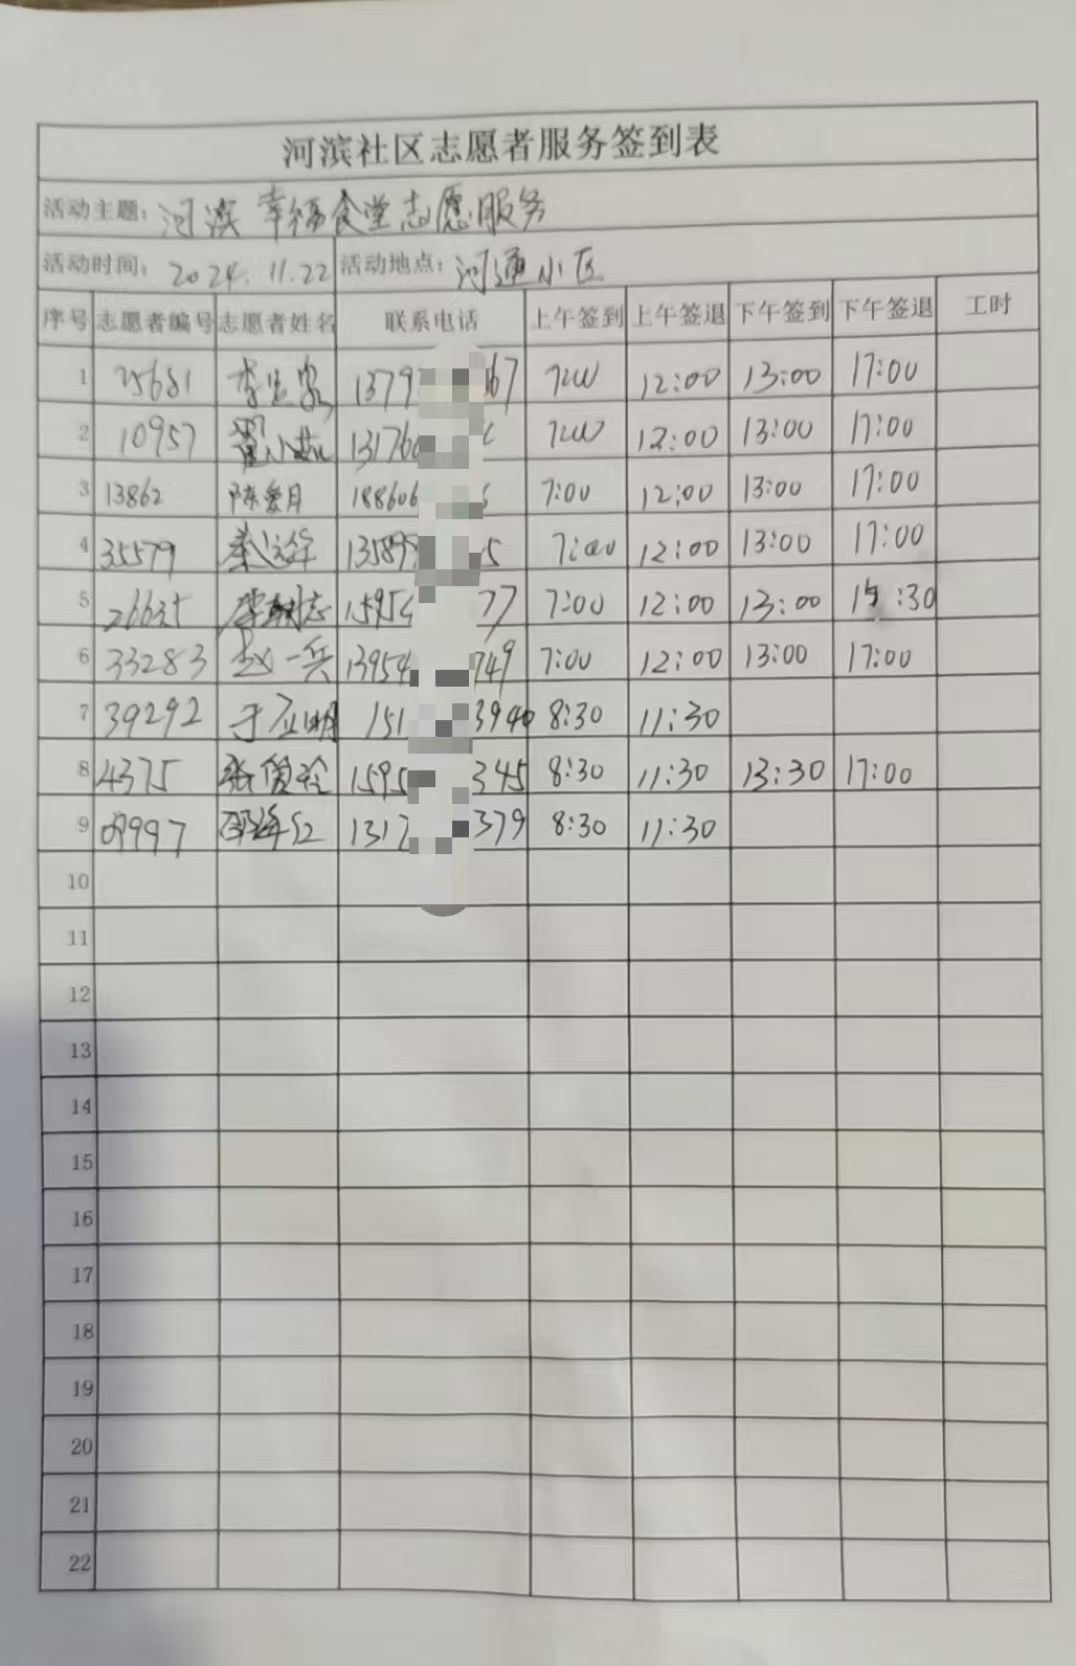 河滨社区志愿者服务签到表
活动主题：河滨幸福食堂志愿服务
活动时间：2024.11.22 活动地点：河通小区
序号 志愿者编号 志愿者姓名 联系电话 上午签到 上午签退 下午签到 下午签退 工时
1 25681 1379 67 7:00 12:00 13:00 17:00
2 10957 13176 7:00 12:00 13:00 17:00
3 13862 陈爱月 188606 7:00 12:00 13:00 17:00
4 35579 13589 5 7:00 12:00 13:00 17:00
5 26635 1595 77 7:00 12:00 13:00 :30
6 33283 赵一兵 13954 749 7:00 12:00 13:00 17:00
7 39292 于 明 151 3940 8:30 11:30
8 4375 张俊玲 1595 345 8:30 11:30 13:30 17:00
9 09997 邵 红 1317 379 8:30 11:30
10
11
12
13
14
15
16
17
18
19
20
21
22